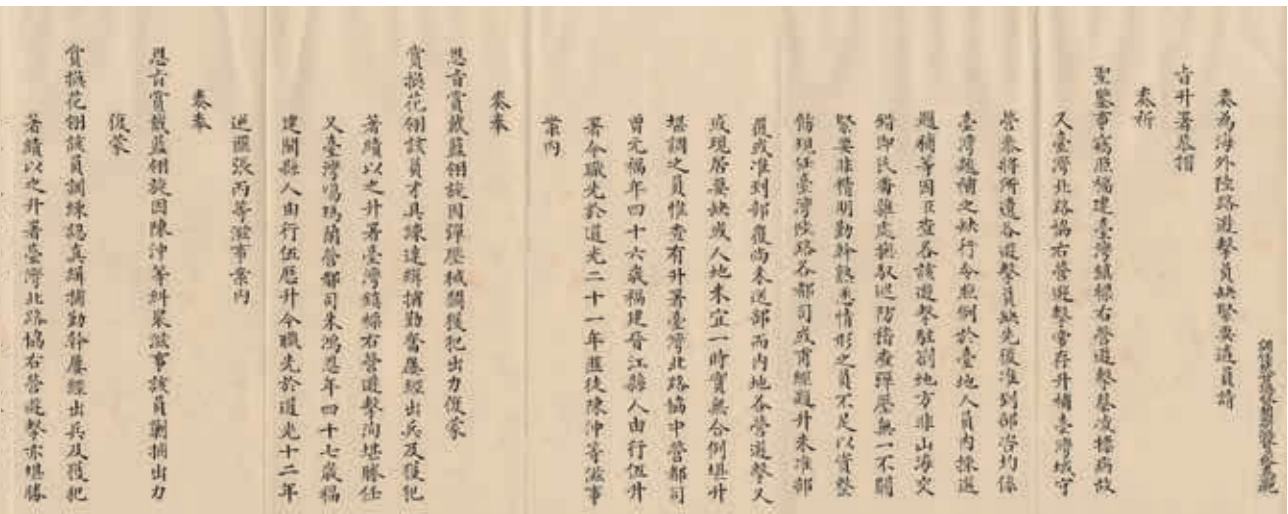 奏為海外陸路遊擊員缺緊要遴員請
旨升署恭摺
奏祈
聖鑒事竊照福建臺灣鎮標右營遊擊蔡凌標病故
又臺灣北路協右營遊擊常存升補臺灣城守
營參將所遺各遊擊員缺先後准到部咨均係
臺灣題補之缺行令照例於臺地人員內揀選
題補等因臣查各該遊擊駐劄地方非山海交
錯即民番雜處撫馭巡防稽查彈壓無一不關
緊要非精明勤幹熟悉情形之員不足以資整
飭現任臺灣陸路各都司或甫經題升未准部
覆或准到部覆尚未送部而內地各營遊擊又
或現居要缺或人地未宜一時實無合例堪升
堪調之員惟查有升署臺灣北路協中營都司
曾元福年四十六歲福建晉江縣人由行伍升
署今職先於道光二十一年匪徒陳沖等滋事
案內
奏奉
恩旨賞戴藍翎旋因彈壓械鬥獲犯出力復蒙
賞換花翎該員才具諫達緝捕勤奮屢經出兵及獲犯
著績以之升署臺灣鎮標右營遊擊洵堪勝任
又臺灣噶瑪蘭營都司朱鴻恩年四十七歲福
建閩縣人由行伍歷升今職先於道光十二年
逆匪張丙等滋事案內
奏奉
恩旨賞戴藍翎旋因陳沖等糾眾滋事該員剿捕出力
復蒙
賞換花翎該員訓練認真緝捕勤幹屢經出兵及獲犯
著績以之升署臺灣北路協右營遊擊亦堪勝